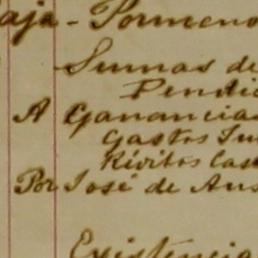 aja - Pormeno
Sumas de
Pendie
A Ganancias
Gastos Su
Réditos Cas
Por José de Aus
Existencia